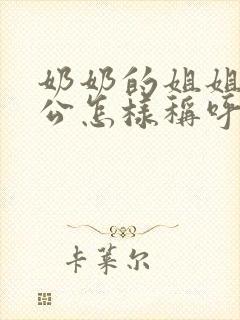 奶奶的姐姐
公怎样稱呼
卡莱尔